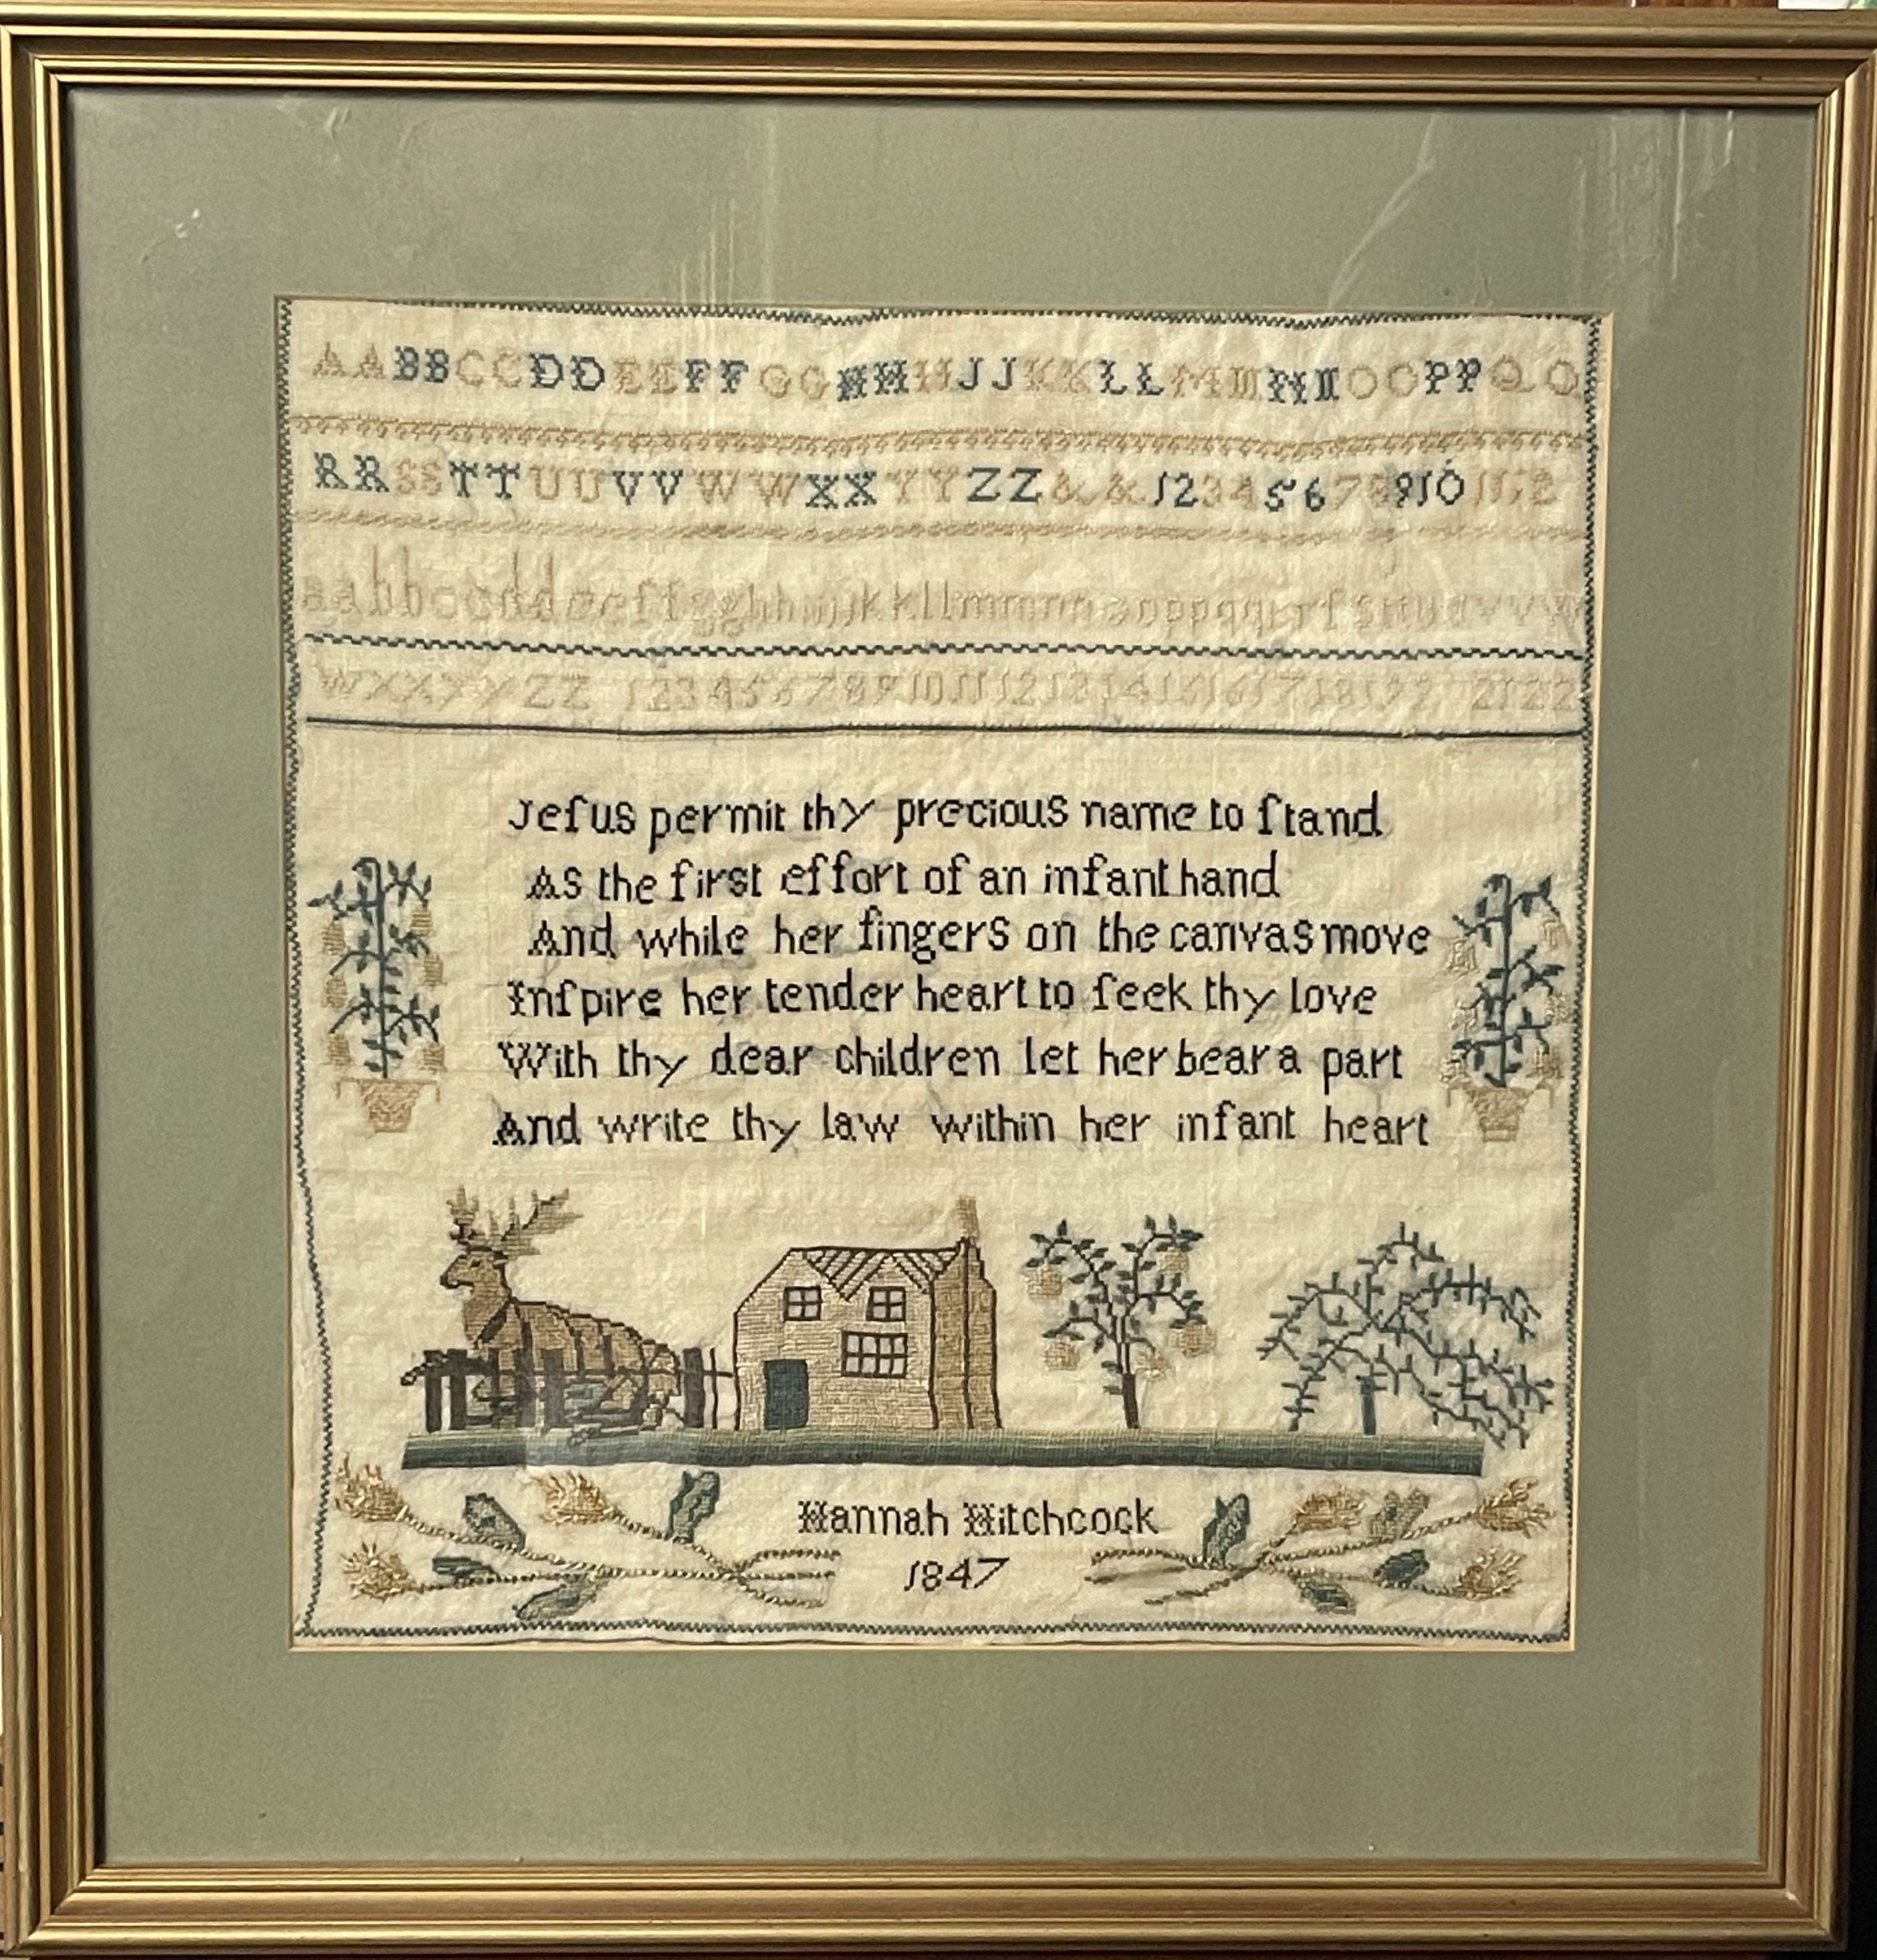 AABBCCDDEEFFGGHHIIJJKKLLMMNNOOPPQQ
RRSSTTUUVVWWXXYYZZ&&123456789101112
aabbccddeeffgghhiijjkkllmmnnooppqqrrſsttuuvvw
WXXYYZZ 12345678910111213141516171819 2 2122
Jeſus permit thy precious name to ſtand
As the first effort of an infant hand
And while her fingers on the canvas move
Inſpire her tender heart to ſeek thy love
With thy dear children let her bear a part
And write thy law within her infant heart
Hannah Hitchcock
1847